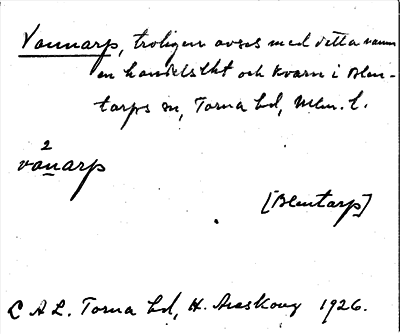 Vannarp, troligen avses med detta namn
en handelslht och kvarn i Blen-
tarps sn, Torna hd, Mlm. l.
2
vánarp
[Blentarp]
C A L. Torna hd, H. Areskoug 1926.